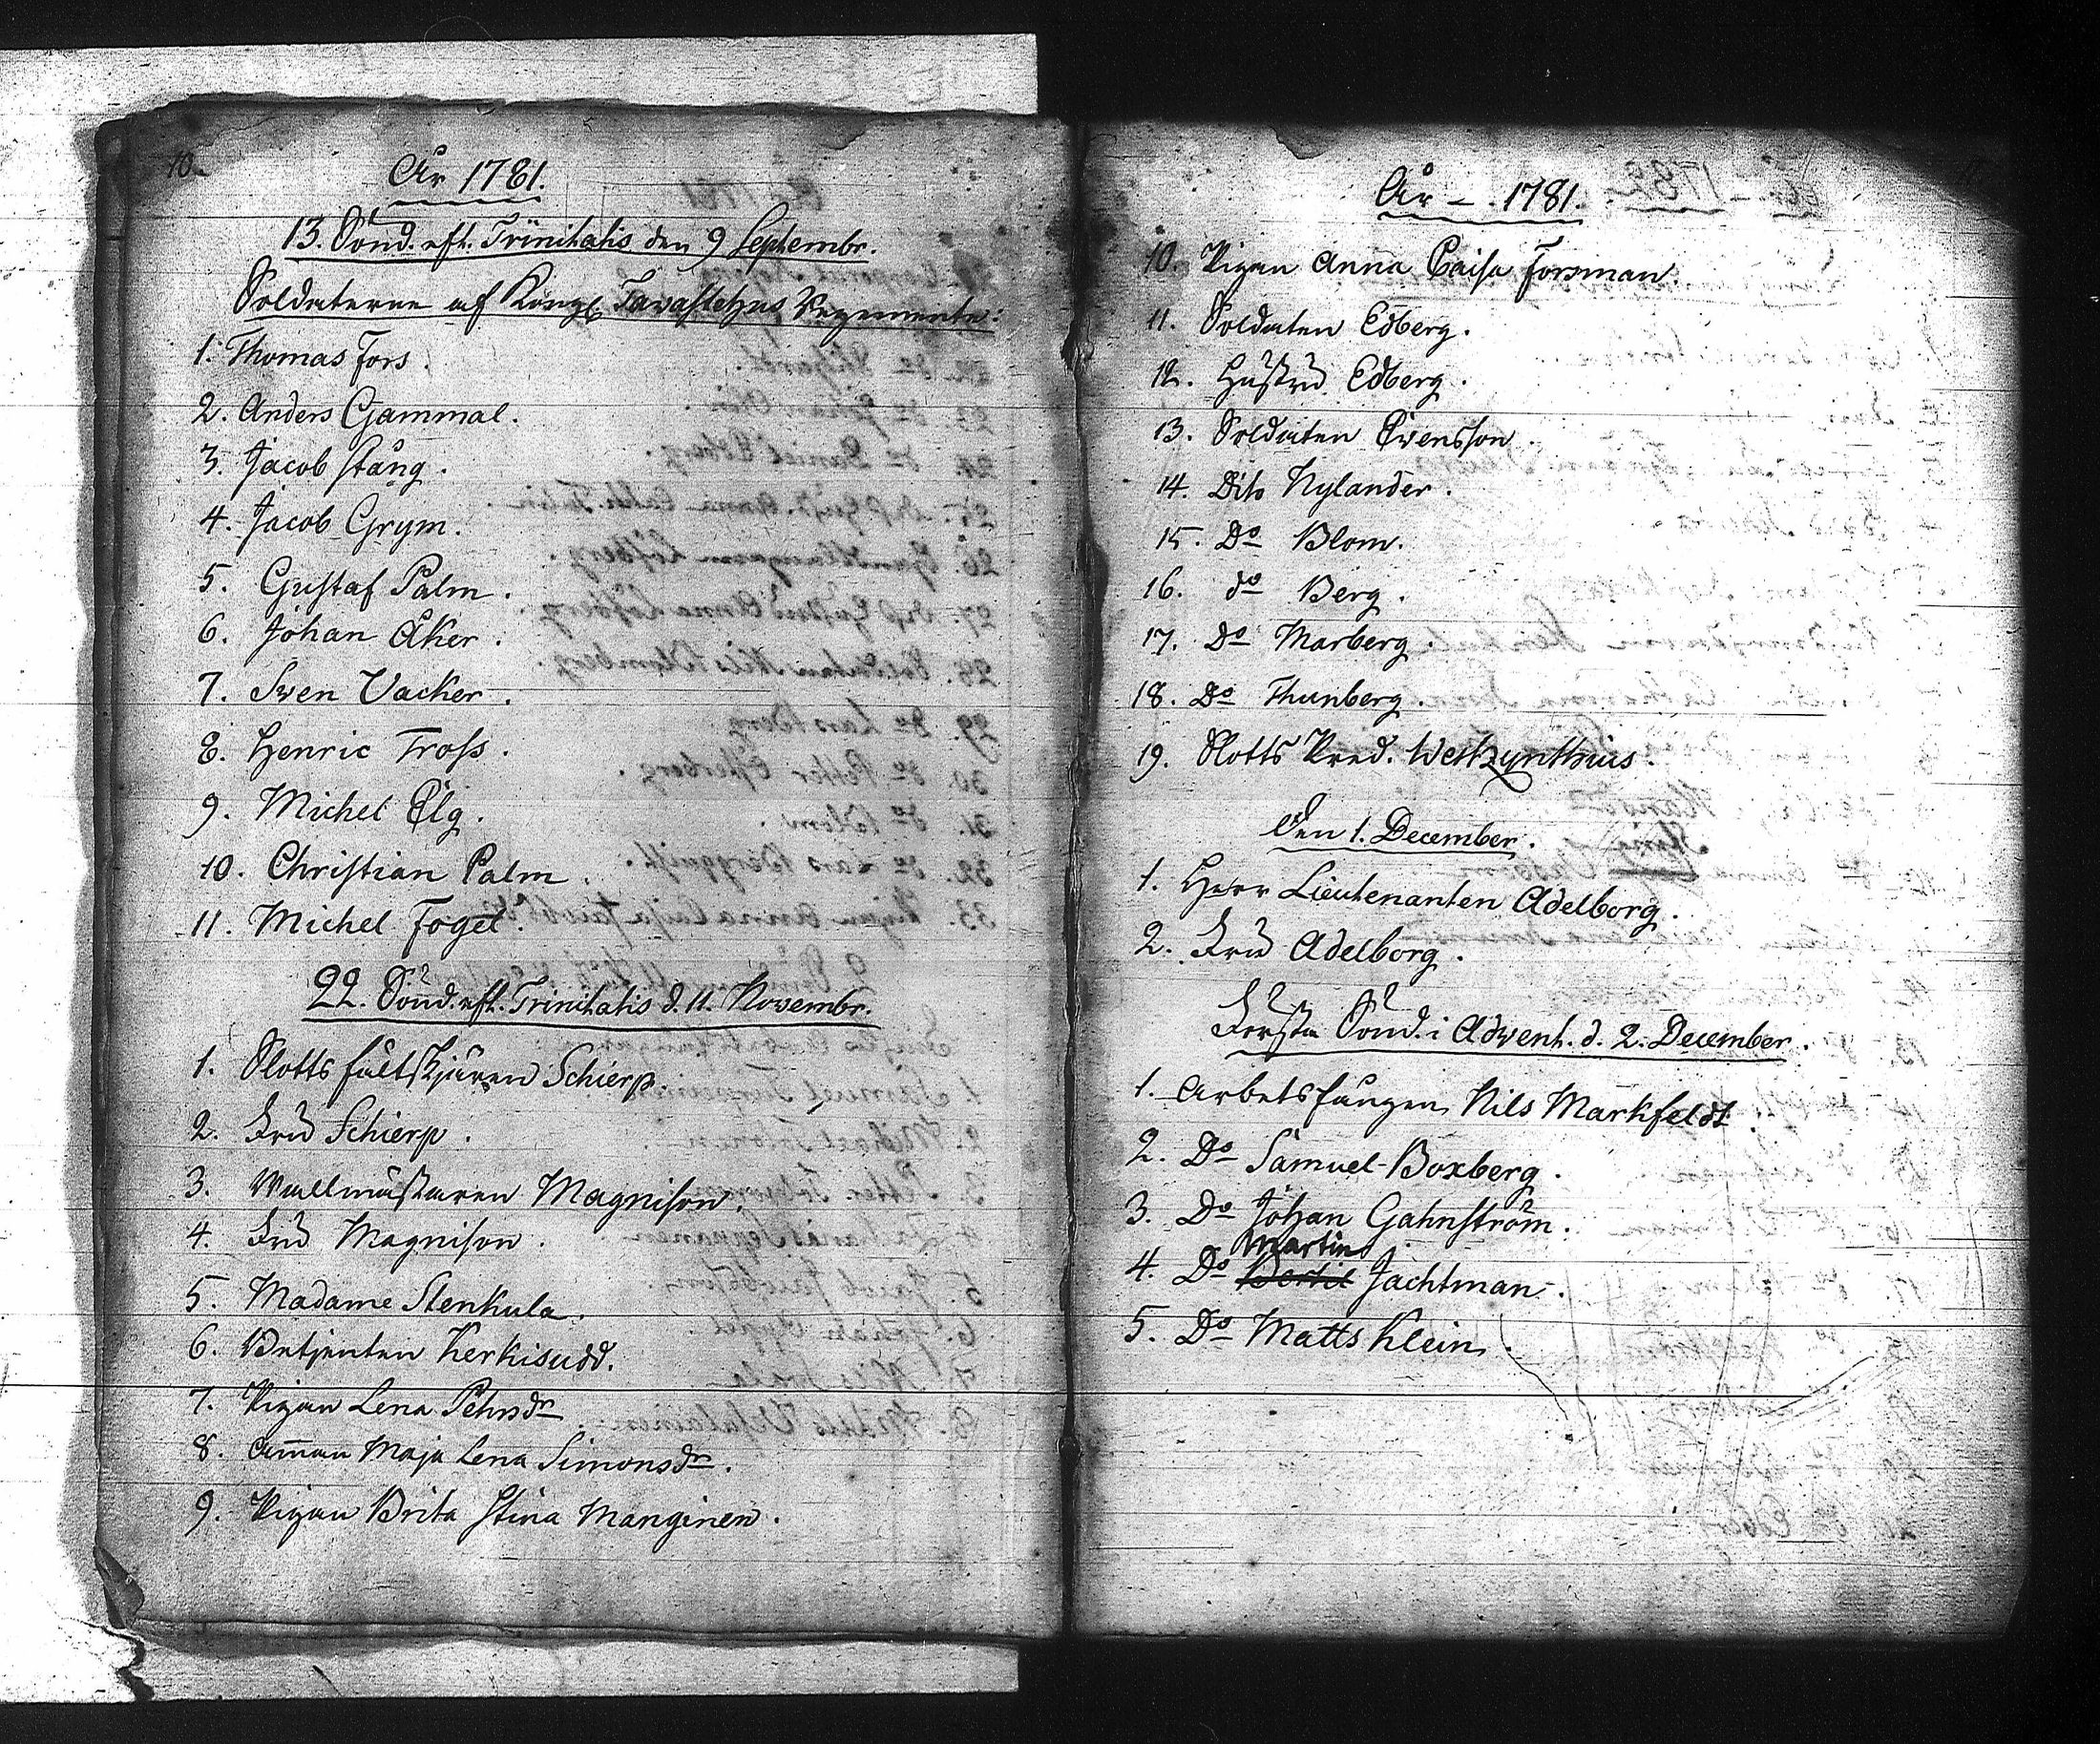 10.
År 1781.
13. Sönd. eft. Trinitatis den 9 Septembr.
Soldaterne af Kongl Tavastehus Regemente:
1. Thomas Fors.
2. Anders Gammal.
3. Jacob Stång.
4. Jacob Grym.
5. Gustaf Palm.
6. Johan Åker.
7. Sven Vacker.
8. Henric Tross.
9. Michel Elg.
10. Christian Palm.
11. Michel Fogel.
22. Sönd. eft. Trinitatis d. 11. Novembr.
1. Slotts fältskjären Schierp.
2. Fru Schierp.
3. Wallmästaren Magnison.
4. Fru Magnison.
5. Madame Stenkula.
6. Betjenten Kerkisudd.
7. Pigan Lena Petersdr
8. Amman Maja Lena Simonsdr.
9. Pigan Brita Stina Manginen.
År - . 1781.
10. Pigan Anna Caisa Forsman.
11. Soldaten Edberg.
12. Hustru Edberg.
13. Soldaten Svensson.
14. Dito Nylander.
15. Do Blom.
16. do Berg.
17. Do Marberg.
18. Do Thunberg.
19. Slotts Pred. Westzynthius.
Den 1. December.
1. Herr Lieutenanten Adelborg.
2. Fru Adelborg.
Första Sönd. i Advent. d. 2. December.
1. Arbetsfången Nils Markfeldt.
2. Do Samuel Boxberg.
3. Do Johan Gahnström.
Martin
4. Do Bertil Jachtman.
5. Do Matts Klein.